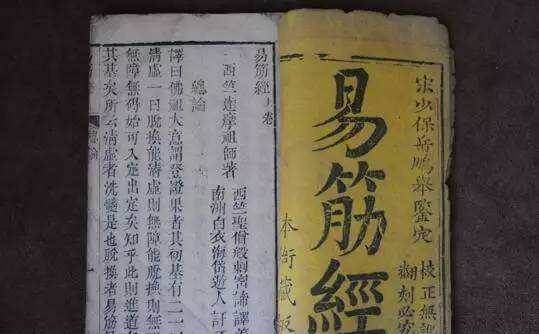 宋少保岳鵬舉鑒定
校正無訛
翻刻必究
易筋經
本衙藏版
易筋經上卷
西竺達摩祖師著
西竺聖僧般剌密諦譯義
南洲白衣海岱遊人訂
總論
譯曰佛祖大意謂登證果者其初基有二一
清虛一曰脫換能清虛則無障能脫換則無
無障無碍始可入定出定矣知乎此則進道
其基矣所云清虛者洗髓是也脫換者易筋
總論